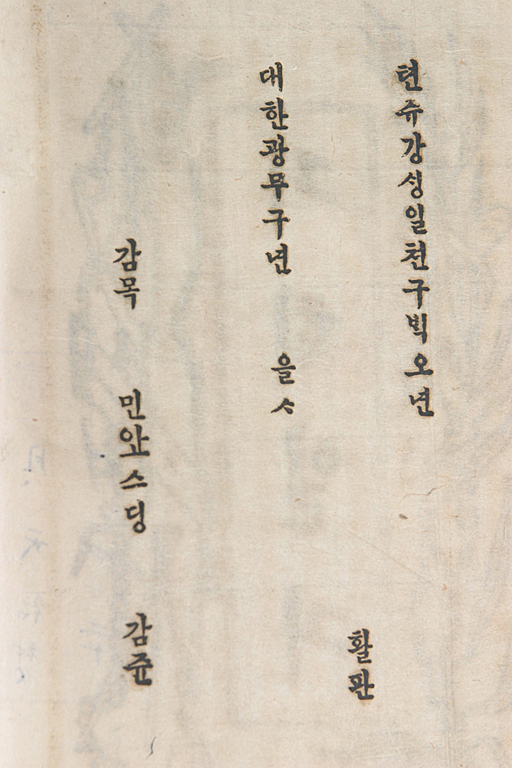 텬쥬강싱일천구빅오년
활판
대한광무구년 을ᄉ
감목 민안스딩 감쥰